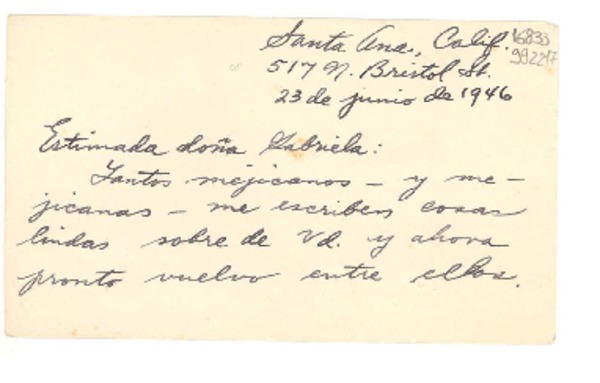 Santa Ana, Calif.
517 N. Bristol St.
23 de junio de 1946
Estimada doña Gabriela:
Tantos mejicanos – y me-
jicanas – me escriben cosas
lindas sobre de Vd. y ahora
pronto vuelvo entre ellos.